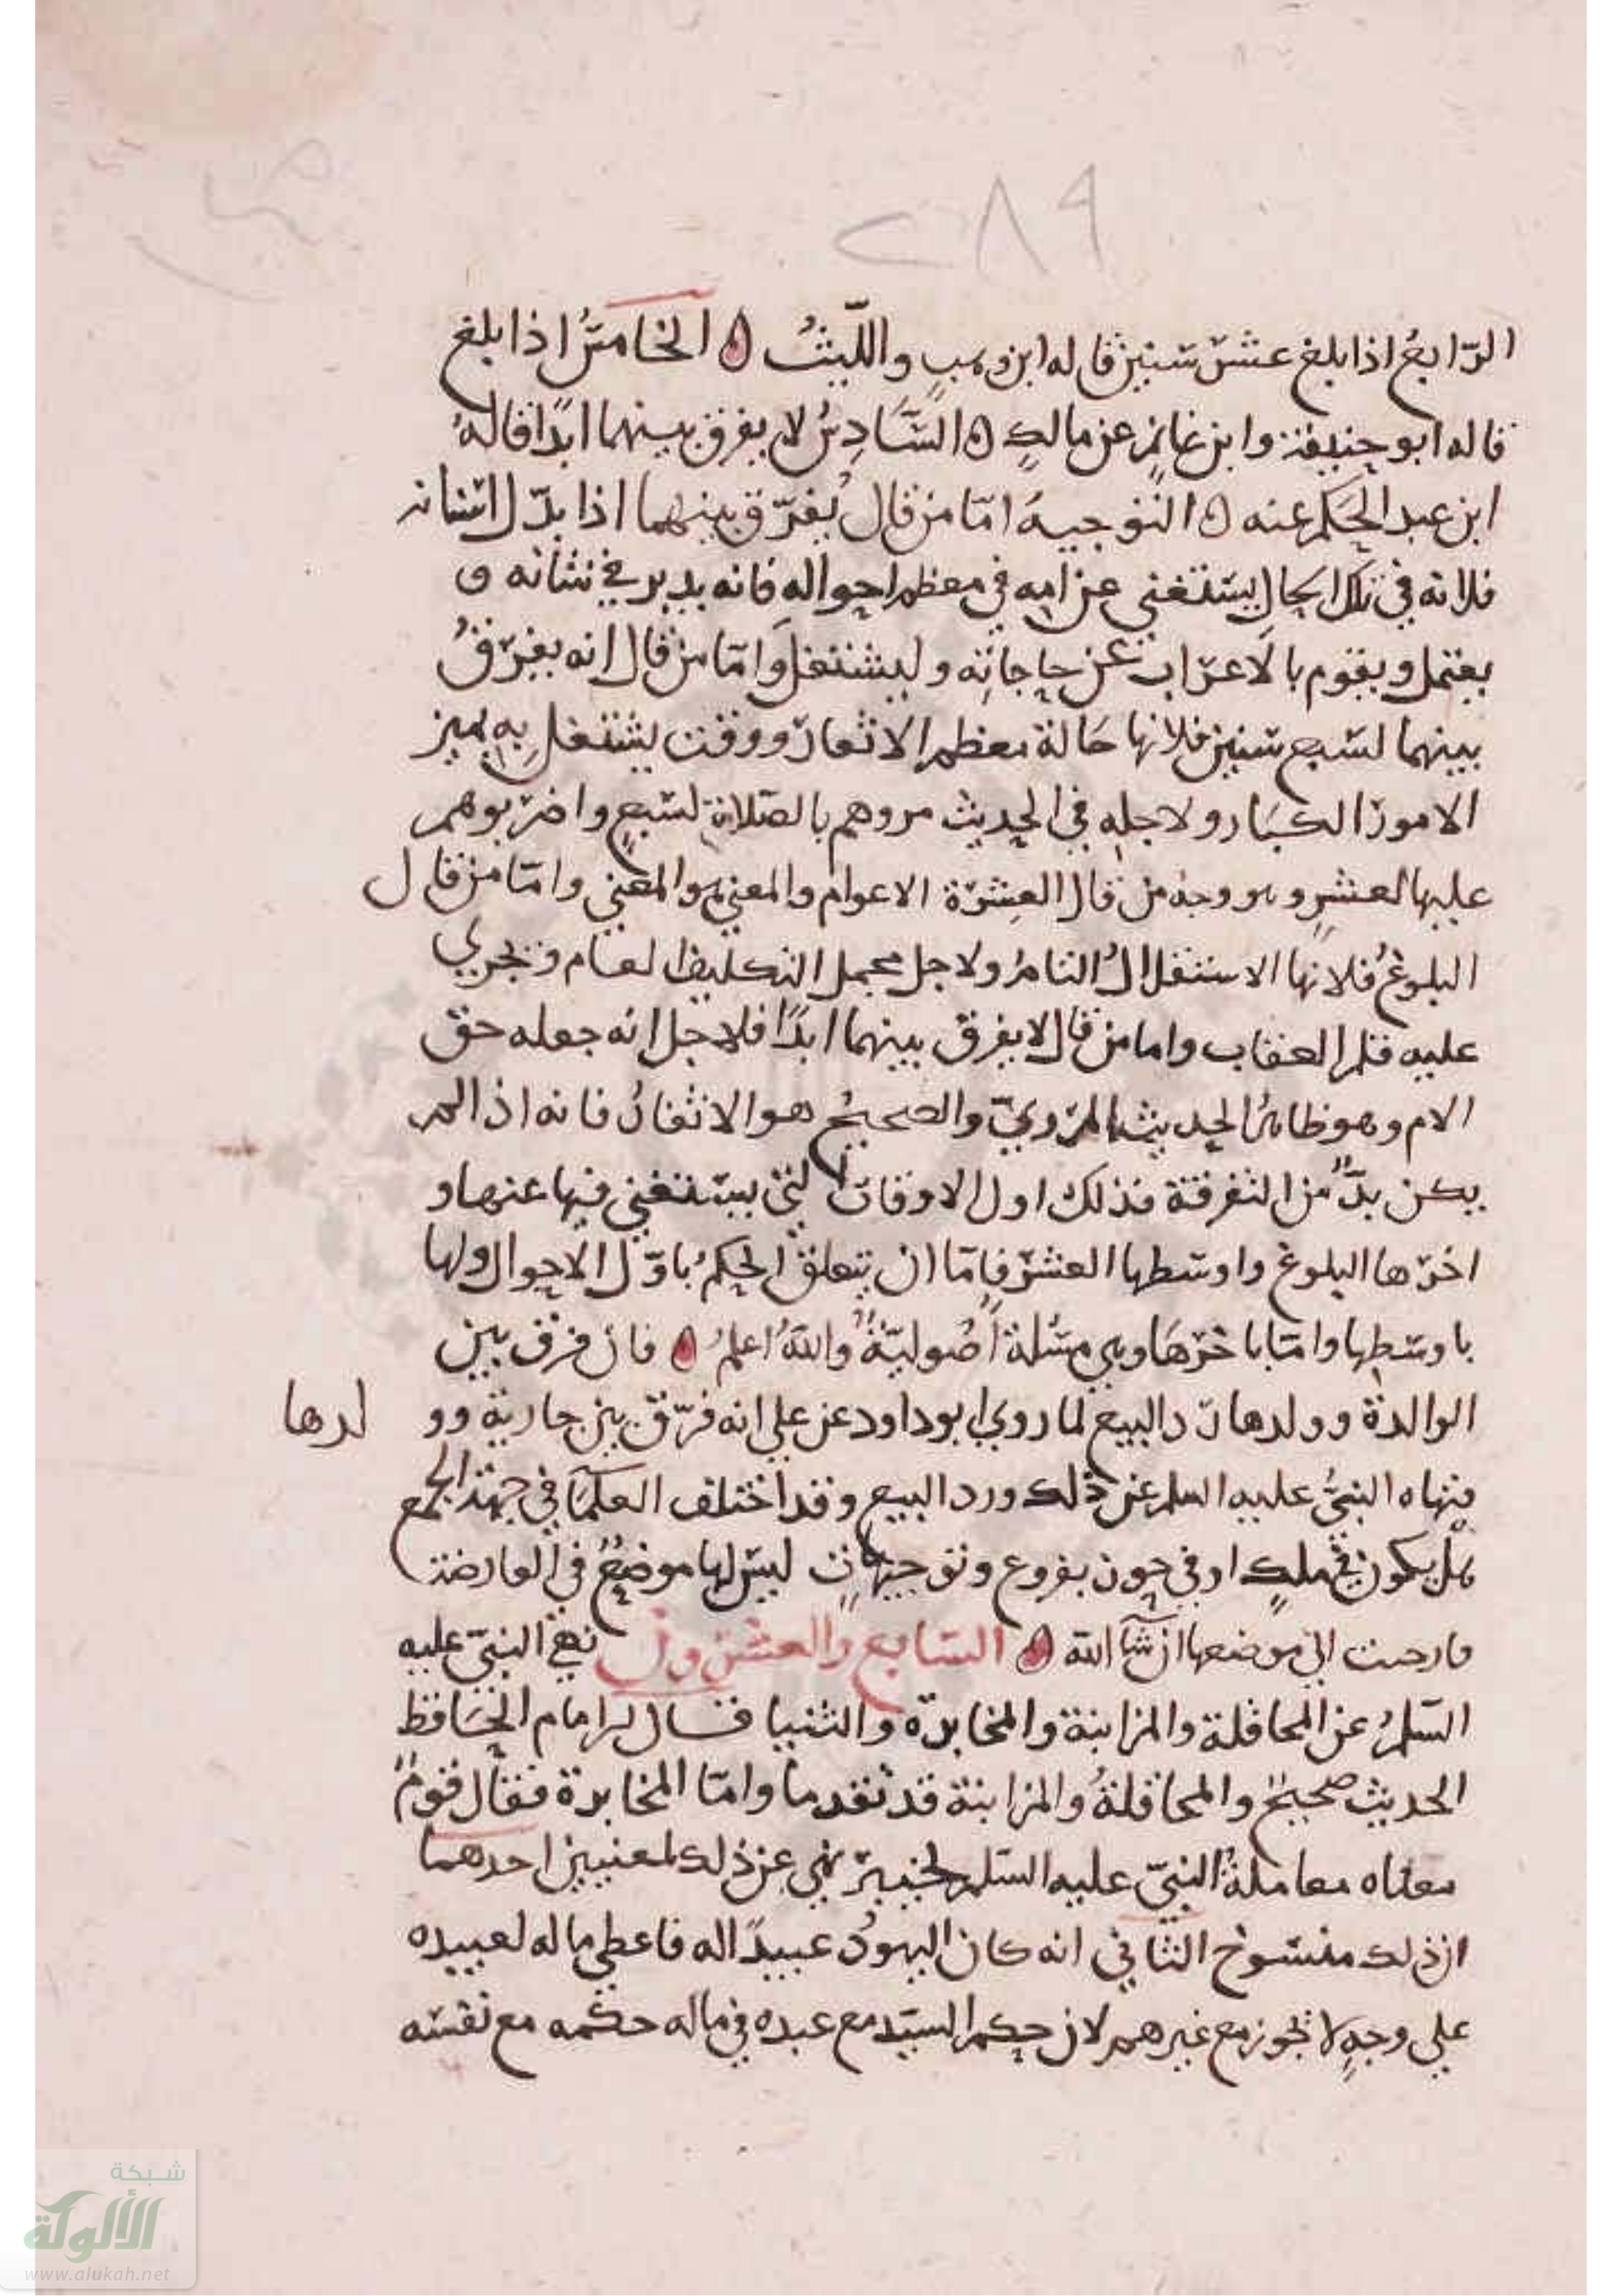 ٢٨٩
الرّابعُ اذا بلغ عشرَ سنين قاله ابن وهبٍ والليثُ ه الخامسُ اذا بلغ
قاله ابو حنيفة وابن غانمٍ عن مالكٍ ه السَّادِسُ لا يفرق بينهما ابدًا قالهُ
ابن عبد الحكم عنه ه التوجيهُ امّا من قال يُفرّق بينهما اذا بدّل اسنانه
فلانه في تلك الحالِ يستغني عن امه في معظم احواله فانه يدبر في شانه و
يعتمل ويقوم بالاعراب عن حاجاتِه وليشتغل وامّا من قال انه يفرّقُ
بينهما لسبع سنين فلانها حَالة معظم الاثغار ووقت يشتغل بِه يميز
الامور الكبار ولاجله في الحديث مروهم بالصّلاةِ لسَبعٍ واضربوهم
عليها لعشرٍ وهو وجهُ من قال العشرَة الاعوام والمعني هو المعني وامّا من قال
البلوغُ فلانها الاستقلالُ التامُ ولاجل محمل التكليف العام وتجري
عليه قلم العقاب واما من قال لا يفرق بينهما ابدًا فلاجل انه جعله حق
الام وهو ظاهرُ الحديث المرويّ والصحيحُ هو الاثغارُ فانه اذا لم
يكن بدٌّ من التفرقة فذلك اول الاوقات التي يستغني فيها عنها و
اخرها البلوغ واوسطها العشر فامّا ان يتعلق الحكمُ باوّل الاحوال ولها
باوسَطِها وامّا باخرهَا وهي مسئلة اُصُوليّةٌ واللهُ اعلمُ ه فان فرق بين
الوالدة وولدها ردّ البيع لما روي ابو داود عن علي انه فرّق بين جارية وو لدها
فنهاه النبيُّ عليه السلم عن ذلك ورد البيع وقد اختلف العلمَا في جهة الجمع
هل يكون في ملكٍ او في حوز بفروع وتوجيهاتٍ ليس لها موضعٌ في العارضة
فارجت الي موضعها ان شآ الله ه السّابع والعشرون نهي النبيّ عليه
السّلمُ عن المحاقلة والمزابنة والمخابرَة والثنيا قال الامام الحافظ
الحديث صحيحٌ والمحاقلةُ والمزابنة قد تقدما وامّا المخابرة فقال قومٌ
معناه معاملةُ النبيّ عليه السّلم لخيبر نهي عن ذلك لمعنيين احدهما
ان ذلك منسُوخ الثاني انه كان اليهودُ عبيدًا له فاعطي ماله لعبيده
علي وجهٍ لا تجوز مع غيرهم لان حكم السيّد مع عبده في ماله حكمه مع نفسه
شبكة
الألوكة
www.alukah.net